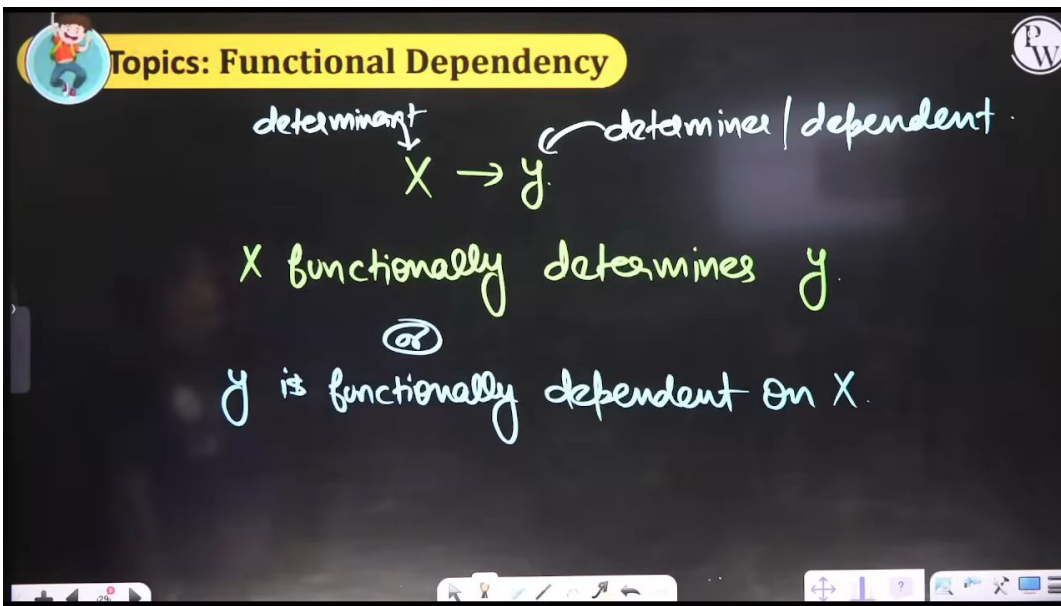 Topics: Functional Dependency
PW
determinant
determiner / dependent.
X → y.
X functionally determines y.
or
y is functionally dependent on X.